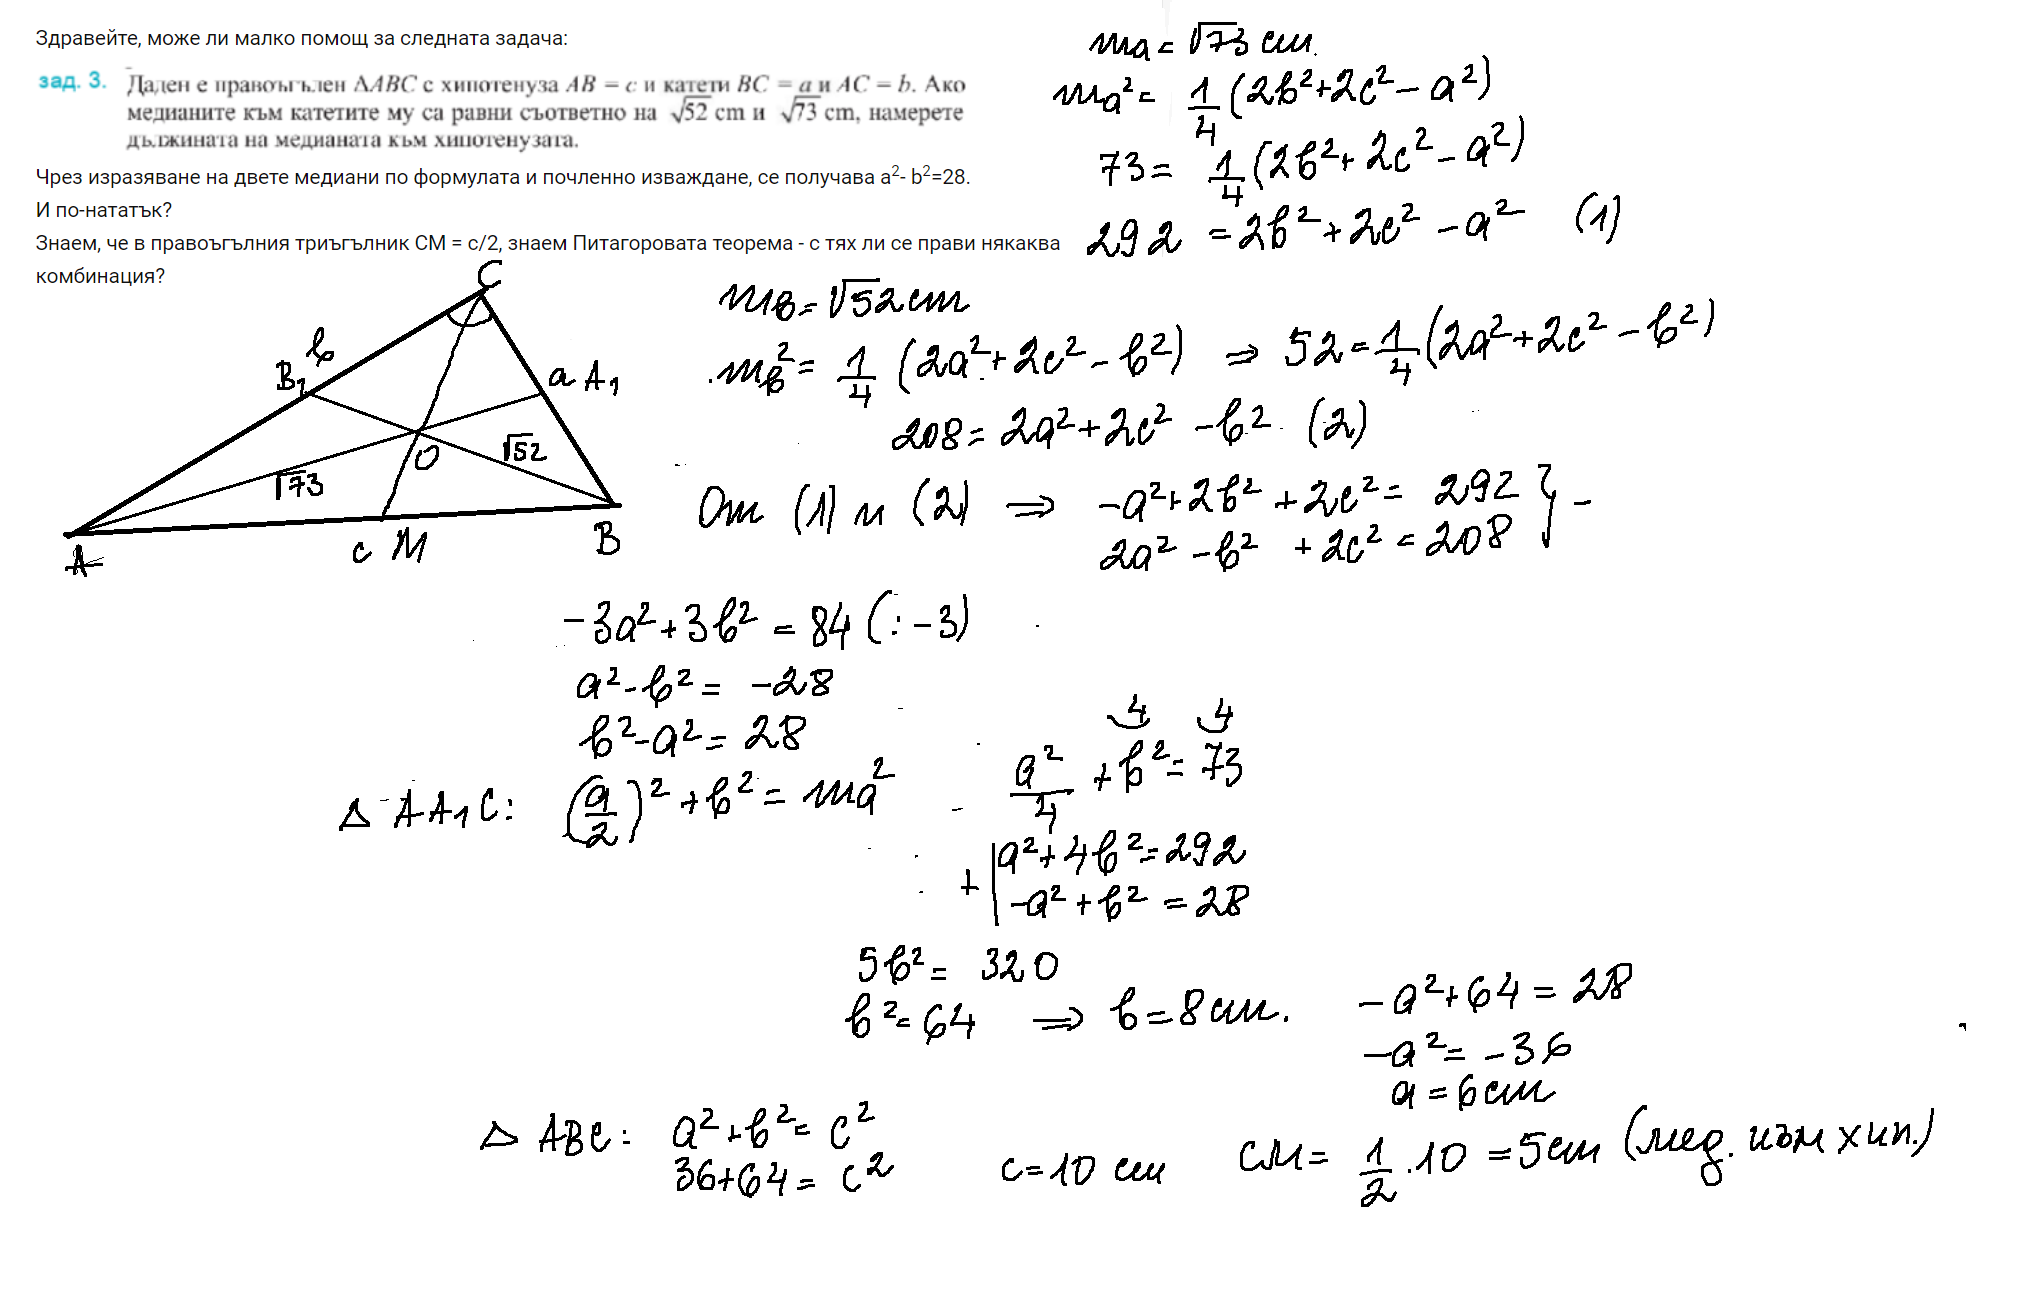 Здравейте, може ли малко помощ за следната задача:
зад. 3. Даден е правоъгълен ΔABC с хипотенуза AB = c и катети BC = a и AC = b. Ако
медианите към катетите му са равни съответно на √52 cm и √73 cm, намерете
дължината на медианата към хипотенузата.
Чрез изразяване на двете медиани по формулата и почленно изваждане, се получава a²- b²=28.
И по-нататък?
Знаем, че в правоъгълния триъгълник CM = c/2, знаем Питагоровата теорема - с тях ли се прави някаква
комбинация?
ma = √73 cm.
ma² = 1/4 (2b²+2c²-a²)
73 = 1/4 (2b²+2c²-a²)
292 = 2b²+2c²-a² (1)
C
b
B₁
a A₁
√52
O
√73
A
c M
B
mb = √52 cm
mb² = 1/4 (2a²+2c²-b²) ⇒ 52 = 1/4 (2a²+2c²-b²)
208 = 2a²+2c²-b² (2)
От (1) и (2) ⇒ -a²+2b²+2c² = 292 } -
2a²-b²+2c² = 208
-3a²+3b² = 84 (: -3)
a²-b² = -28
b²-a² = 28
Δ AA₁C: (a/2)²+b² = ma²
4 4
a²/4 + b² = 73
+ | a²+4b² = 292
-a²+b² = 28
5b² = 320
b² = 64 ⇒ b = 8 cm.
-a²+64 = 28
-a² = -36
a = 6 cm
Δ ABC: a²+b² = c²
36+64 = c²
c = 10 cm
CM = 1/2 . 10 = 5 cm (мед. към хип.)